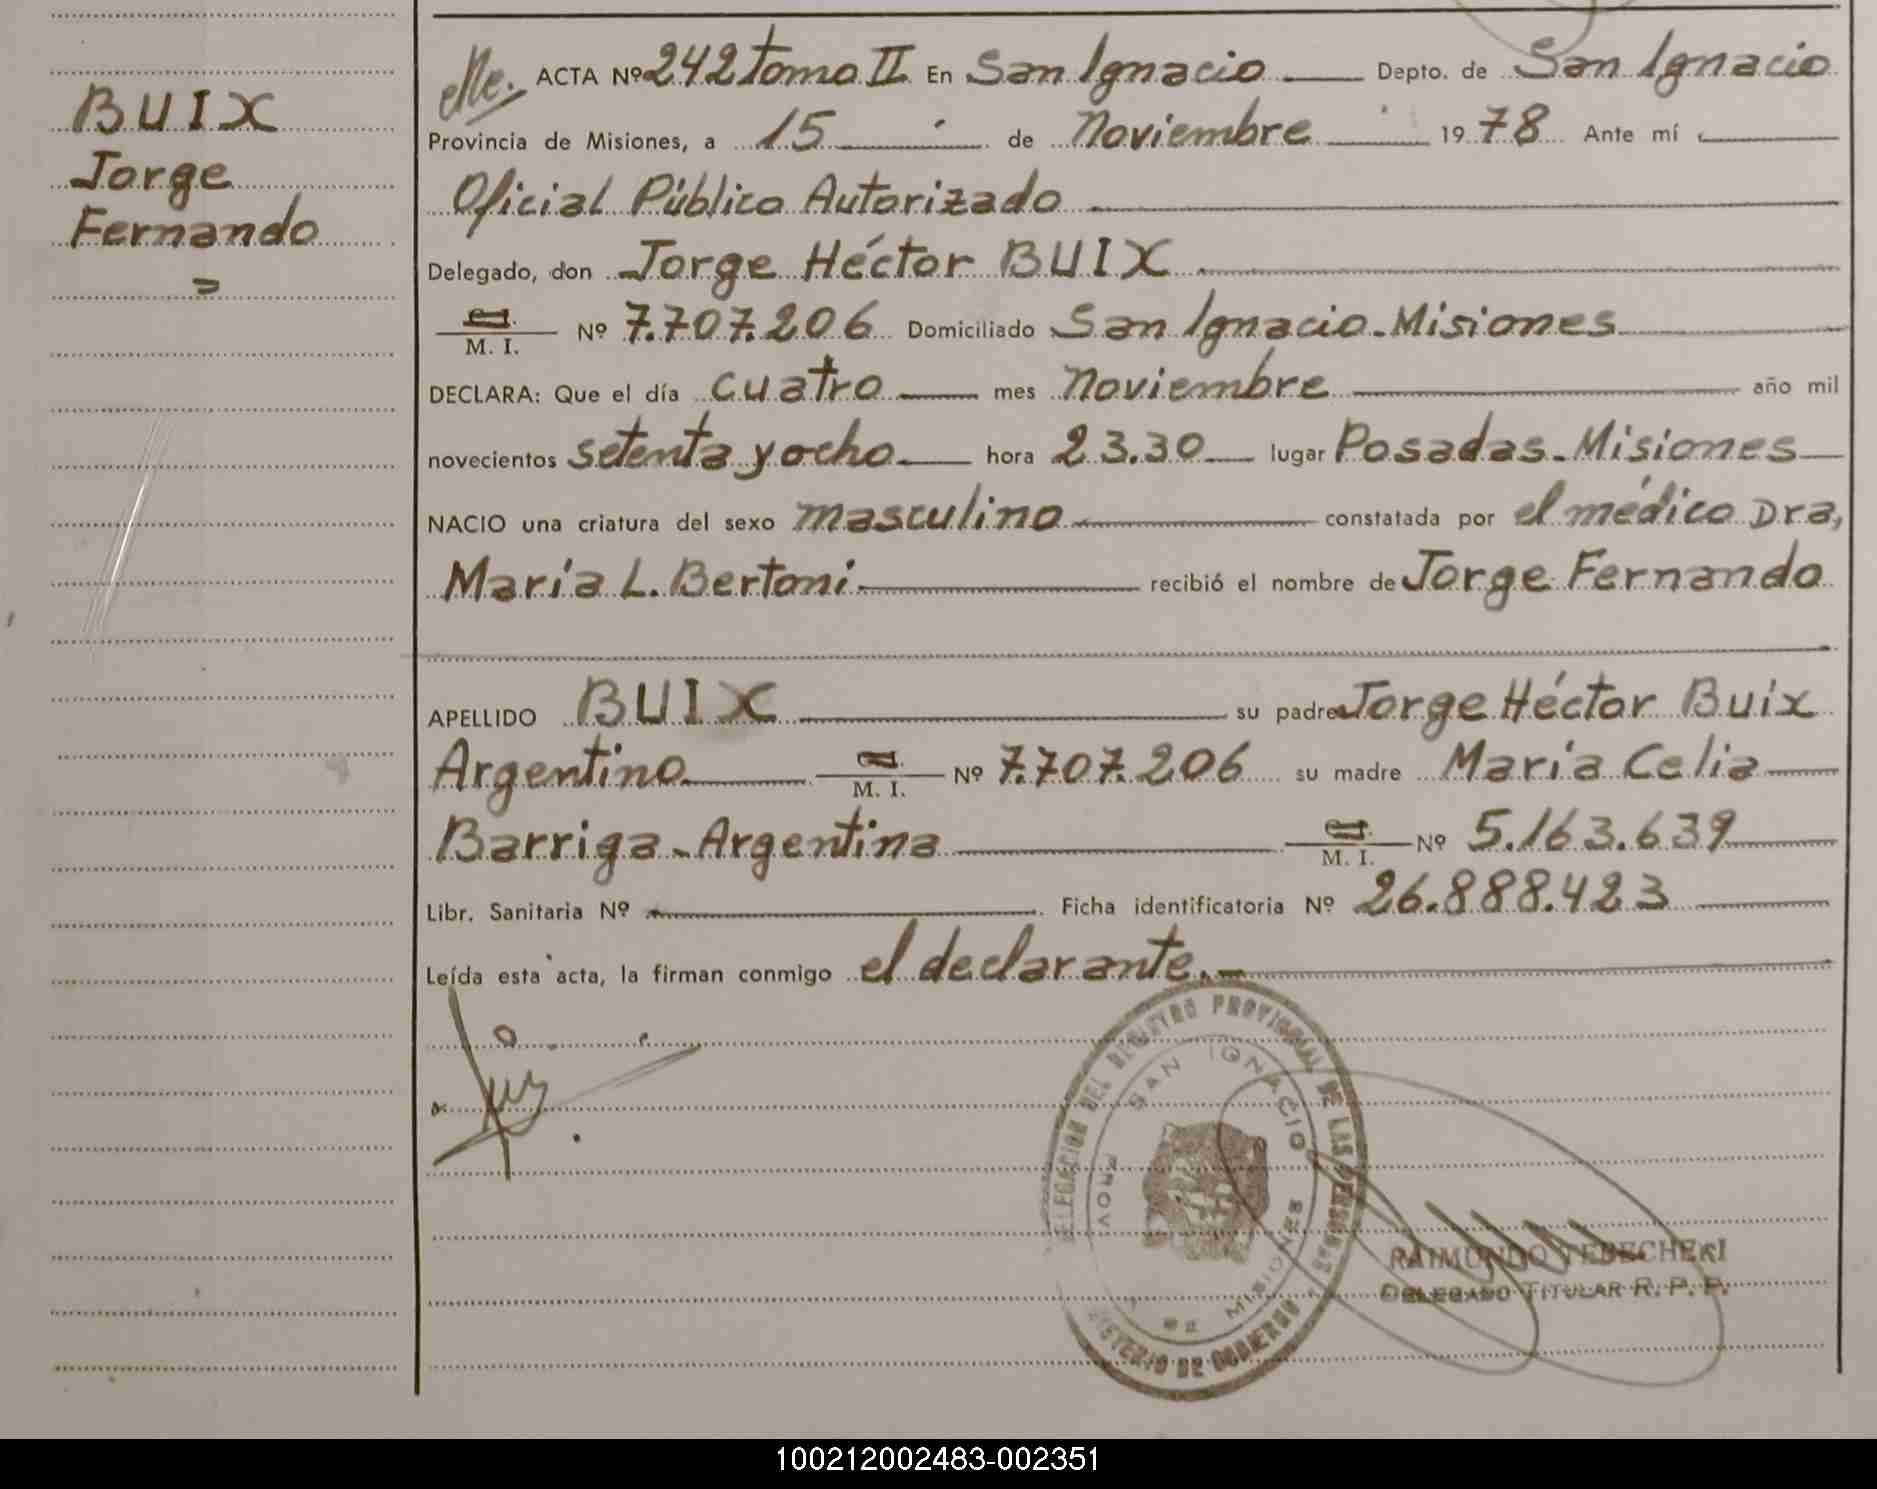 BUIX
Jorge
Fernando
=
ACTA Nº 242 Tomo II En San Ignacio Depto. de San Ignacio
Provincia de Misiones, a 15 de Noviembre 1978 Ante mí
Oficial Público Autorizado
Delegado, don Jorge Héctor BUIX
M. I. Nº 7.707.206 Domiciliado San Ignacio - Misiones
DECLARA: Que el día cuatro mes Noviembre año mil
novecientos setenta y ocho hora 23.30 lugar Posadas - Misiones
NACIO una criatura del sexo masculino constatada por el médico Dra,
María L. Bertoni recibió el nombre de Jorge Fernando
APELLIDO BUIX su padre Jorge Héctor Buix
Argentino M. I. Nº 7.707.206 su madre María Celia
Barriga - Argentina M. I. Nº 5.163.639
Libr. Sanitaria Nº Ficha identificatoria Nº 26.888.423
Leída esta acta, la firman conmigo el declarante.-
DELEGACION DEL REGISTRO PROVINCIAL DE LAS PERSONAS
SAN IGNACIO
PROV. DE MISIONES
MINISTERIO DE GOBIERNO
RAIMUNDO TEBECHERI
DELEGADO TITULAR R. P. P.
100212002483-002351